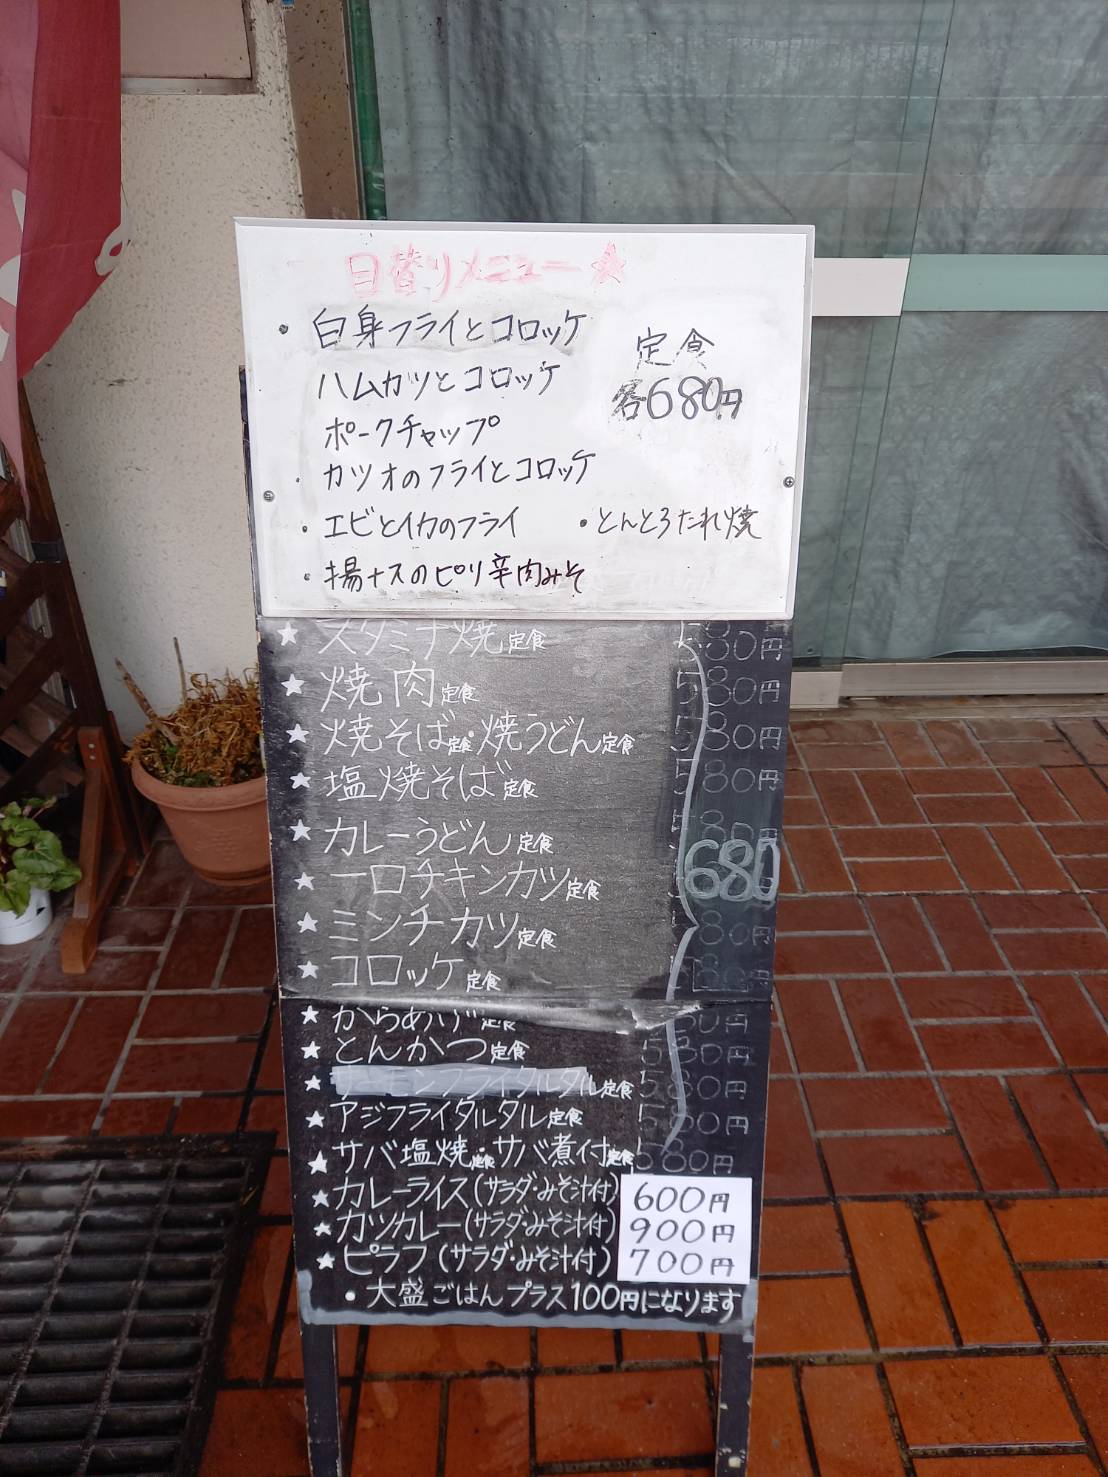 日替りメニュー★
・白身フライとコロッケ
定食
各680円
ハムカツとコロッケ
ポークチャップ
・カツオのフライとコロッケ
・エビとイカのフライ ・とんとろたれ焼
・揚ナスのピリ辛肉みそ
★スタミナ焼定食 580円
★焼肉定食 580円
★焼そば定食・焼うどん定食 580円
★塩焼そば定食 580円
★カレーうどん定食 580円
★一口チキンカツ定食 680
★ミンチカツ定食 80円
★コロッケ定食
★からあげ定食 80円
★とんかつ定食 580円
★サーモンフライタルタル定食 580円
★アジフライタルタル定食 580円
★サバ塩焼定食・サバ煮付定食 580円
★カレーライス(サラダ・みそ汁付) 600円
★カツカレー(サラダ・みそ汁付) 900円
★ピラフ(サラダ・みそ汁付) 700円
・大盛ごはんプラス100円になります